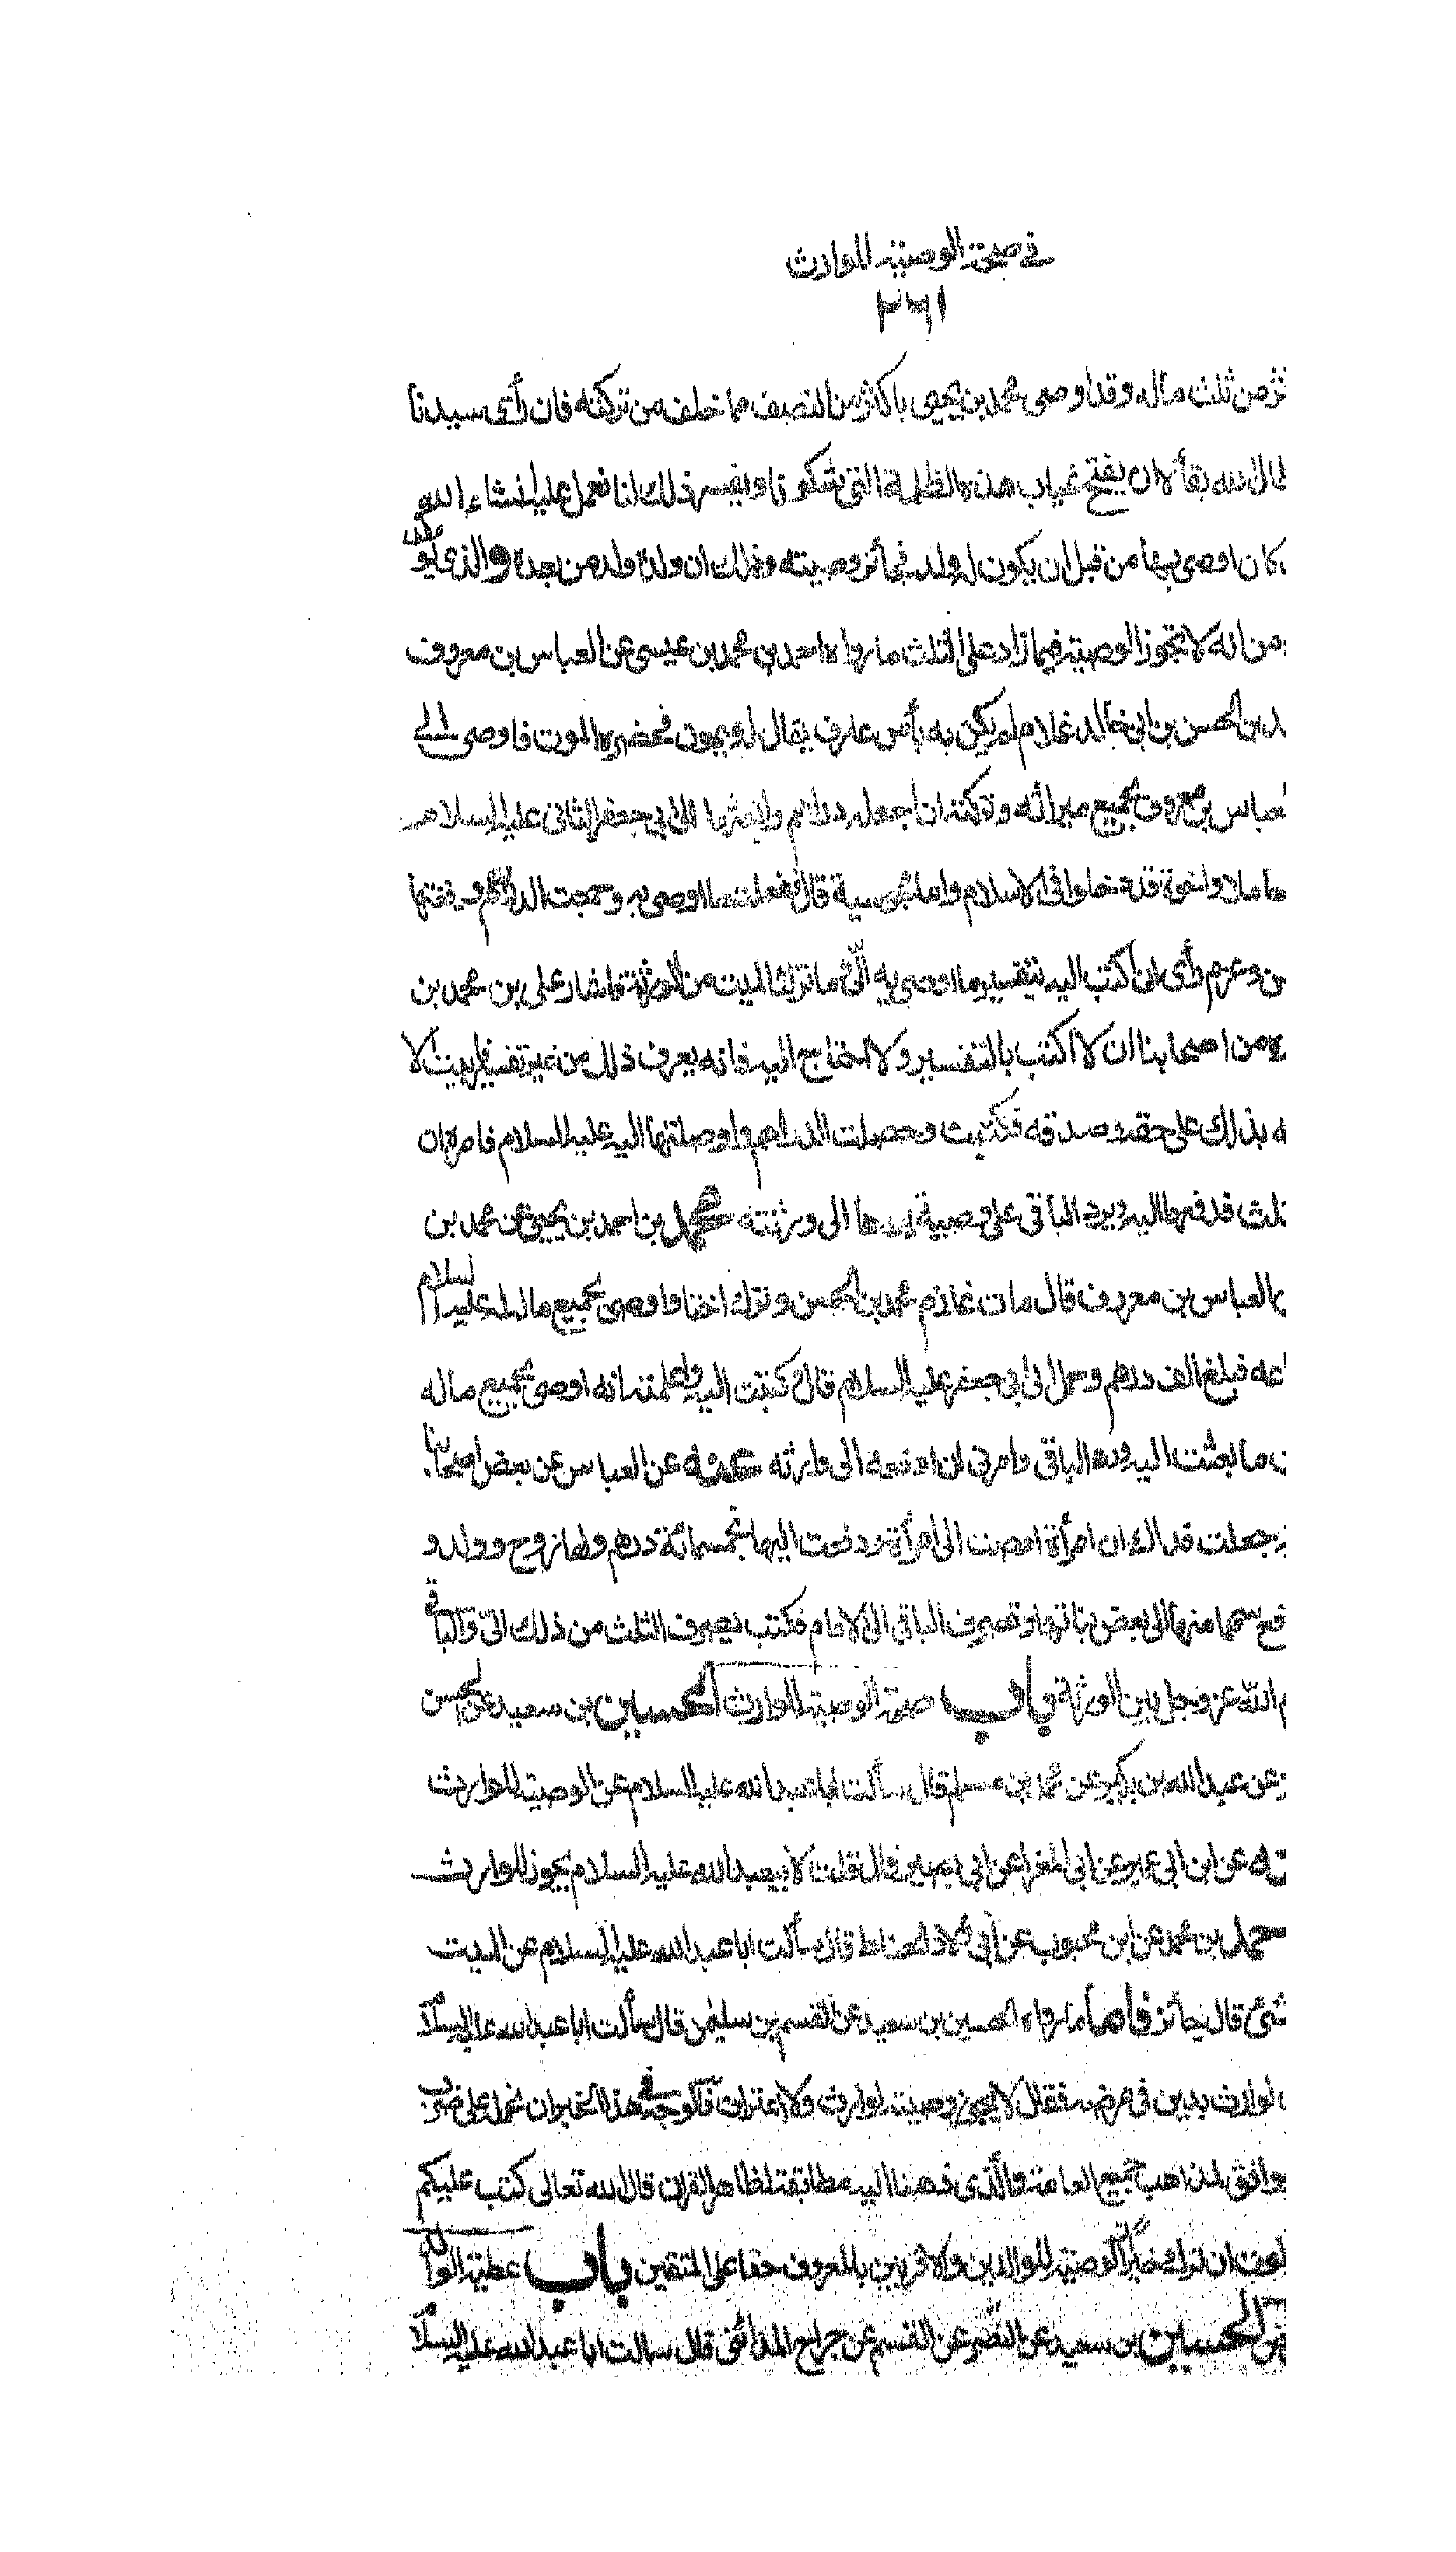 في صحة الوصية للوارث
٢٦١
من ثلث ماله وقد اوصى محمد بن يحيى باكثر من النصف مما خلف من تركته فان رأى سيدنا
اطال الله بقاءه ان يفتح غياب هذه الظلمة التي شكونا ويفسر ذلك لنا نعمل عليه انشاء الله
كان اوصى بها من قبل ان يكون له ولد فجائز وصيته وذلك ان ولده ولد من بعده والذي
من انه لا تجوز الوصية فيما زاد على الثلث ما رواه احمد بن محمد بن عيسى عن العباس بن معروف
بن الحسن بن ابي خالد غلام لم يكن به بأس عارف يقال له ميمون فحضره الموت فاوصى الى
العباس بن معروف بجميع ميراثه وتركته ان اجعله دراهم وابعث بها الى ابي جعفر الثاني عليه السلام
حاملا واخوة قد دخلوا في الاسلام واما مجوسية قال ففعلت ما اوصى به وجمعت الدراهم ودفعتها
وعزم رأى ان اكتب اليه بتفسير ما اوصى به الى وما ترك الميت من الورثة فاشار على بن محمد بن
من اصحابنا ان لا اكتب بالتفسير ولا احتاج اليه فانه يعرف ذلك من غير تفسير فابيت الا
بذلك على حقه وصدقه فكتبت وحصلت الدراهم واوصلتها اليه عليه السلام فامره ان
ثلث فدفعها اليه ويرد الباقي على وصيه يردها الى ورثته محمد بن احمد بن يحيى عن محمد بن
العباس بن معروف قال مات غلام محمد بن الحسن وترك اختا واوصى بجميع ماله له عليه السلام
فبلغ الف درهم وحمل الى ابي جعفر عليه السلام قال وكتبت اليه واعلمته انه اوصى بجميع ماله
ما بعثت اليه ورد الباقي وامرني ان ادفعه الى وارثه عنه عن العباس عن بعض اصحابنا
جعلت فداك ان امرأة اوصت الى امرأة ودفعت اليها خمسمائة درهم ولها زوج وولد و
سهما منها الى بعض بناتها وتصرف الباقي الى الامام فكتب يصرف الثلث من ذلك الى والباقي
الله عز وجل بين الورثة باب صحة الوصية للوارث الحسين بن سعيد عن الحسن
عن عبد الله بن بكير عن محمد بن مسلم قال سألت ابا عبد الله عليه السلام عن الوصية للوارث
عنه عن ابن ابي عمير عن ابي المغرا عن ابي بصير قال قلت لابي عبد الله عليه السلام يجوز للوارث
بن محمد عن ابن محبوب عن ابي ولاد الحناط قال سألت ابا عبد الله عليه السلام عن الميت
شئ قال جائز فاما ما رواه الحسين بن سعيد عن القسم بن سليمن قال سألت ابا عبد الله عليه السلام
لوارث بدين في مرضه فقال لا يجوز وصيته لوارث ولا اعتراف فالوجه في هذا الخبر ان نحمله على ضرب
لمذاهب جميع العامة والذي ذهبنا اليه مطابقة لظاهر القران قال الله تعالى كتب عليكم
ان ترك خيرا الوصية للوالدين والاقربين بالمعروف حقا على المتقين باب عطية الوالد
الحسين بن سعيد عن النضر عن القسم عن جراح المدائني قال سالت ابا عبد الله عليه السلام